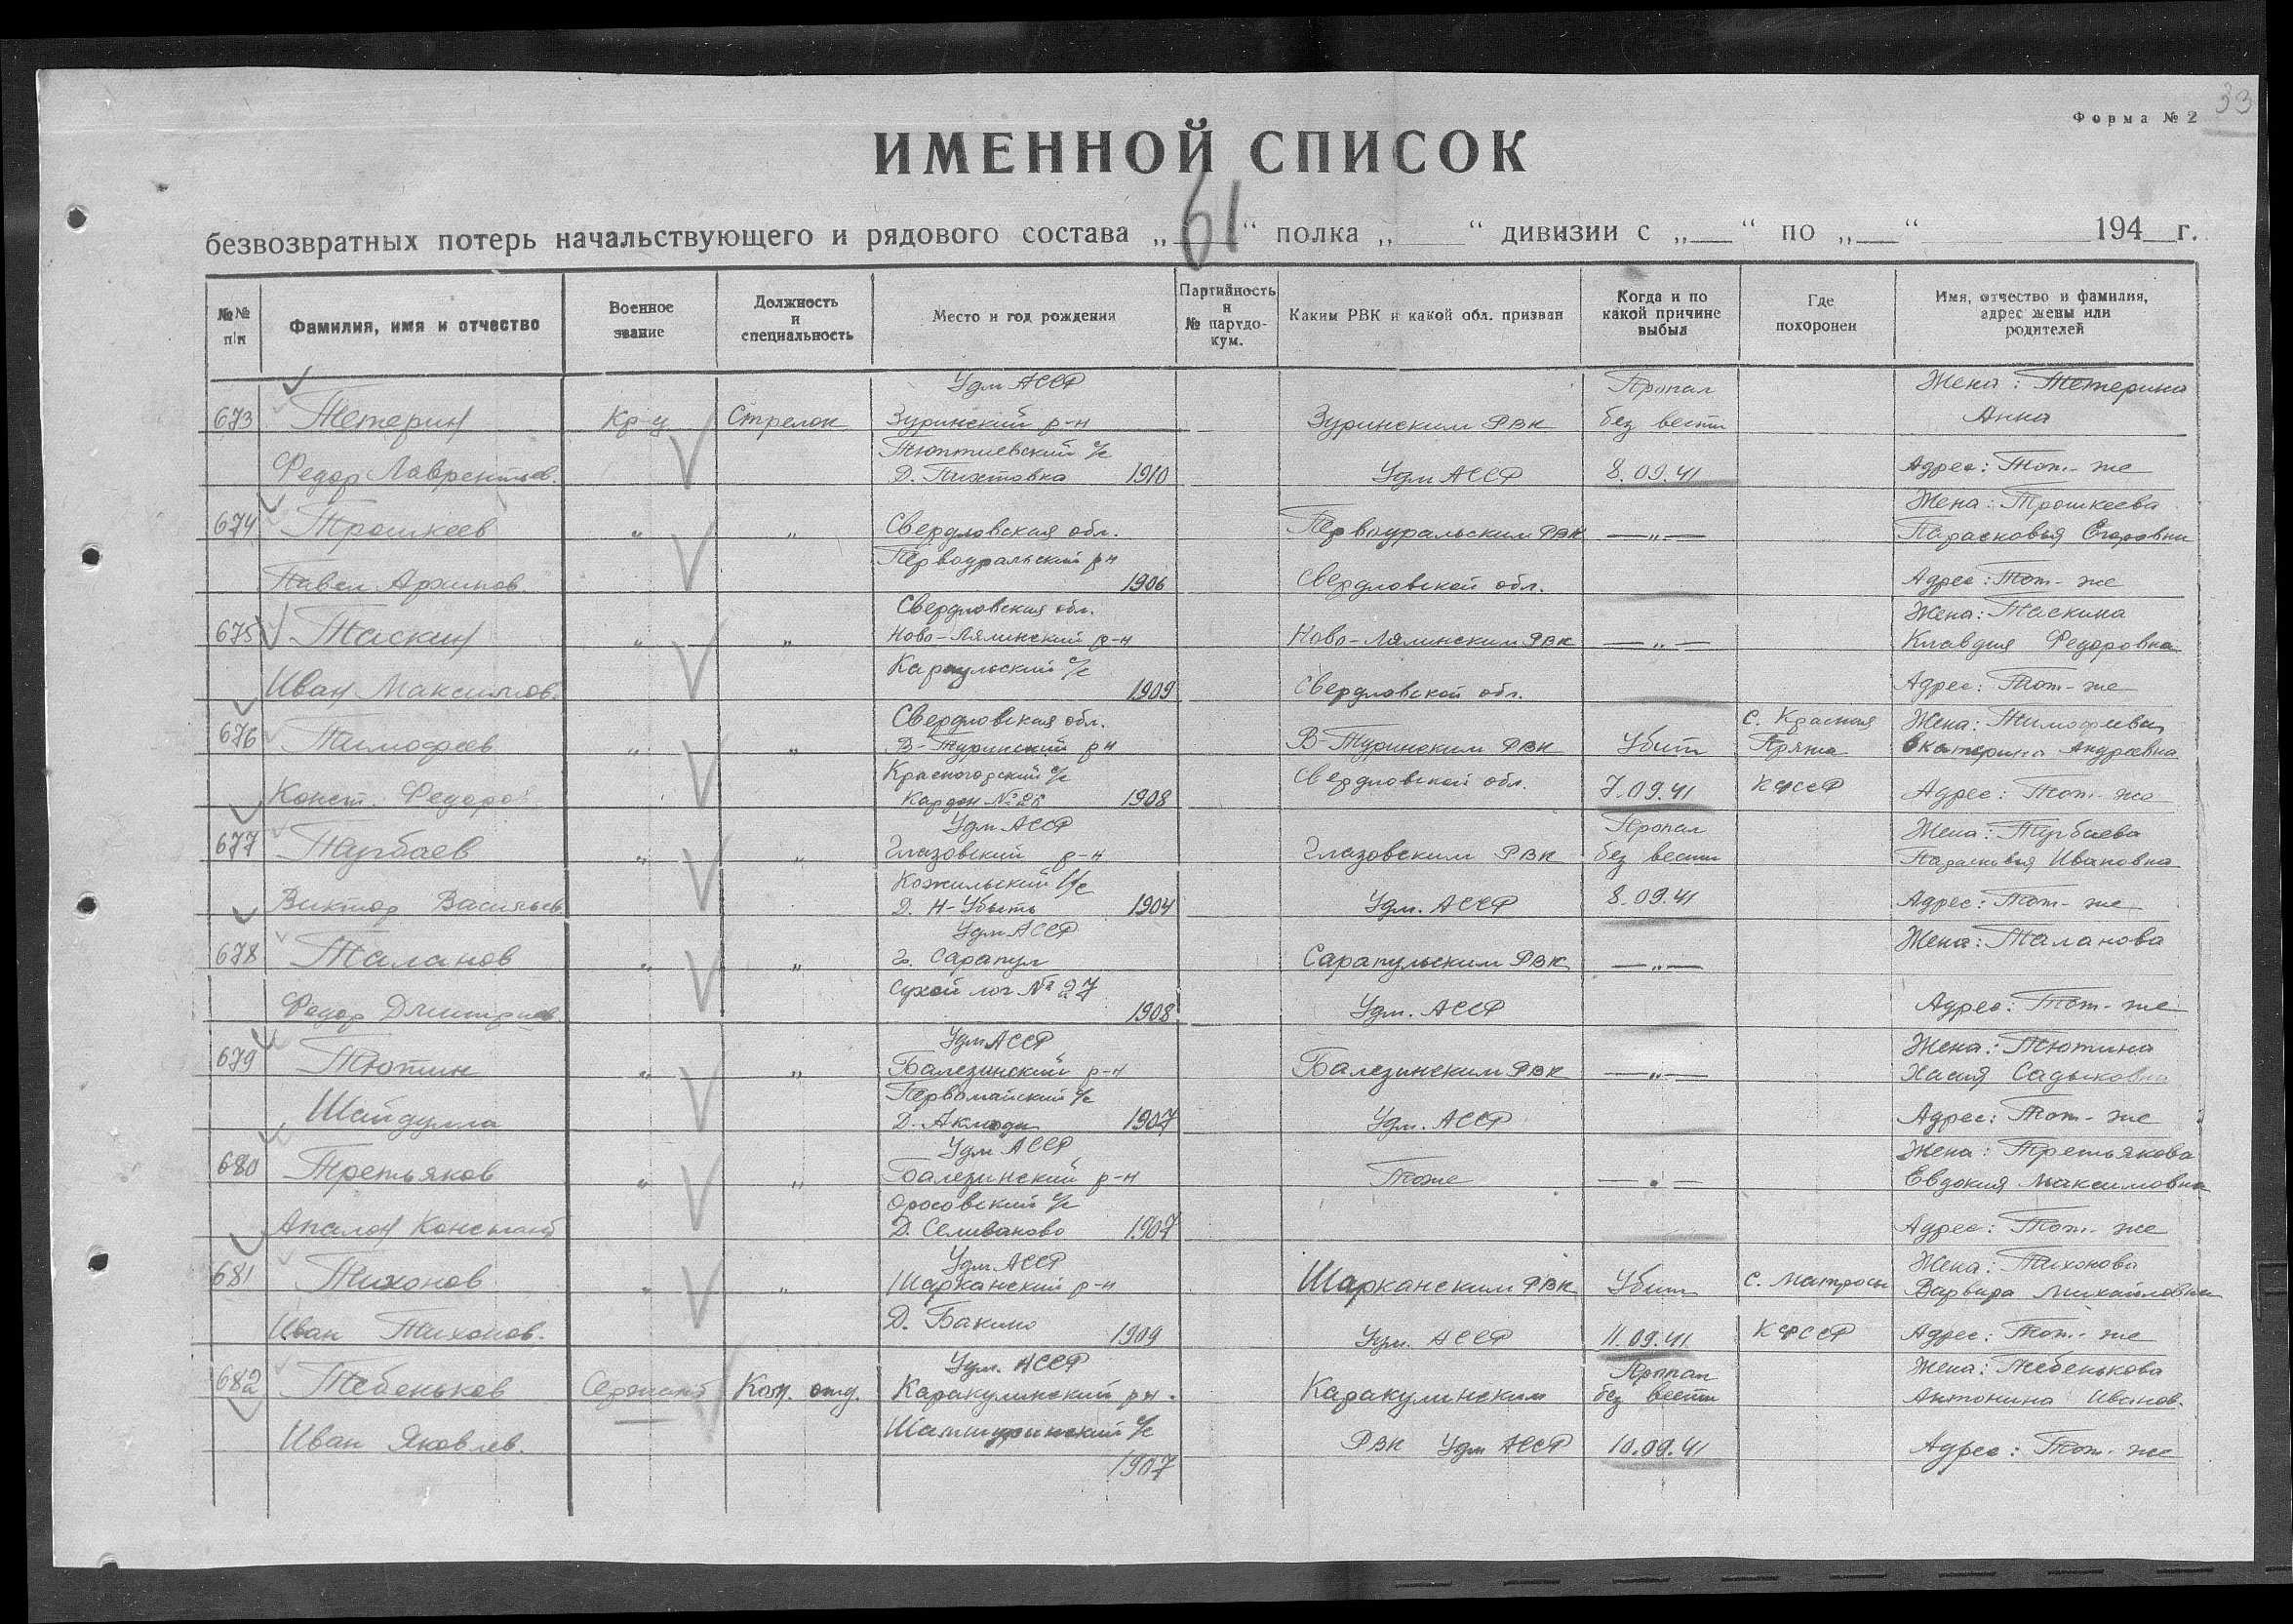 33
Форма № 2
ИМЕННОЙ СПИСОК
безвозвратных потерь начальствующего и рядового состава „ 61 “ полка „ “ дивизии с „ “ по „ “ 194 г.
№№ п/п
Фамилия, имя и отчество
Военное звание
Должность и специальность
Место и год рождения
Партийность и № партдокум.
Каким РВК и какой обл. призван
Когда и по какой причине выбыл
Где похоронен
Имя, отчество и фамилия, адрес жены или родителей
Удм АССР Пропал Жена: Тетерина
673 Тетерин Кр-ц Стрелок Зуринский р-н Зуринским РВК без вести Анна
Тюптиевский с/с
Федор Лаврентьев. Д. Пихтовка 1910 Удм АССР 8.09.41 Адрес: Там-же
Жена: Трошкеева
674 Трошкеев „ „ Свердловская обл. Первоуральским РВК —„— Парасковья Егоровна
Первоуральский рн
Павел Архипов. 1906 Свердловской обл. Адрес: Там-же
Свердловская обл. Жена: Таскина
675 Таскин „ „ Ново-Лялинский р-н Ново-Лялинским РВК —„— Клавдия Федоровна
Караульский с/с
Иван Максимов. 1909 Свердловской обл. Адрес: Там-же
Свердловская обл. С. Красная Жена: Тимофеева
676 Тимофеев „ „ В-Туринский рн В-Туринским РВК Убит Пряжа Екатерина Андреевна
Красногорский с/с
Конст. Федоро Кардон № 26 1908 Свердловской обл. 7.09.41 КФССР Адрес: Там-же
Удм АССР Пропал Жена: Тугбаева
677 Тугбаев „ „ Глазовский р-н Глазовским РВК без вести Парасковья Ивановна
Кожильский с/с
Виктор Васильев Д. Н-Убыть 1904 Удм. АССР 8.09.41 Адрес: Там-же
Удм АССР Жена: Таланова
678 Таланов „ „ г. Сарапул Сарапульским РВК —„—
Сухой лог № 27
Федор Дмитриев. 1908 Удм. АССР Адрес: Там-же
Удм АССР Жена: Тютина
679 Тютин „ „ Балезинский р-н Балезинским РВК —„— Хасия Садыковна
Первомайский с/с
Шайдулла Д. 1907 Удм. АССР Адрес: Там-же
Удм АССР Жена: Третьякова
680 Третьяков „ „ Балезинский р-н Тоже —„— Евдокия Максимовна
Оросовский с/с
Апалон Констант Д. Селиваново 1907 Адрес: Там-же
Удм. АССР Жена: Тихонова
681 Тихонов „ „ Шарканский р-н Шарканским РВК Убит с. Матросы Варвара Михайловна
Иван Тихонов. Д. Бакино 1909 Удм. АССР 11.09.41 КФССР Адрес: Там-же
Удм. АССР Пропал Жена: Тебенькова
682 Тебеньков Сержант Ком. отд. Каракулинский рн. Каракулинским без вести Антонина Иванов.
Иван Яковлев. с/с РВК Удм АССР 10.09.41 Адрес: Там-же
1907